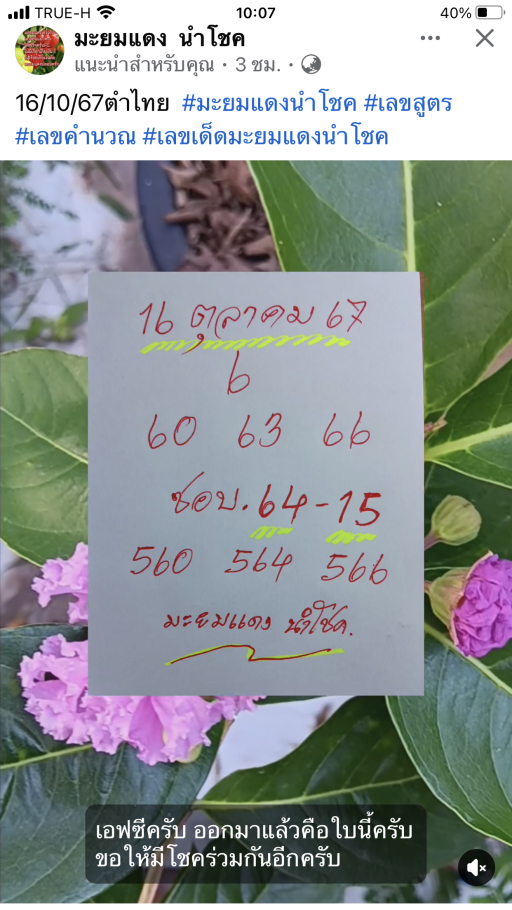 TRUE-H 10:07 40%
มะยมแดง นำโชค
แนะนำสำหรับคุณ · 3 ชม. ·
16/10/67ตำไทย #มะยมแดงนำโชค #เลขสูตร
#เลขคำนวณ #เลขเด็ดมะยมแดงนำโชค
16 ตุลาคม 67
6
60 63 66
ชอบ.64-15
560 564 566
มะยมแดง นำโชค.
เอฟซีครับ ออกมาแล้วคือใบนี้ครับ
ขอให้มีโชคร่วมกันอีกครับ